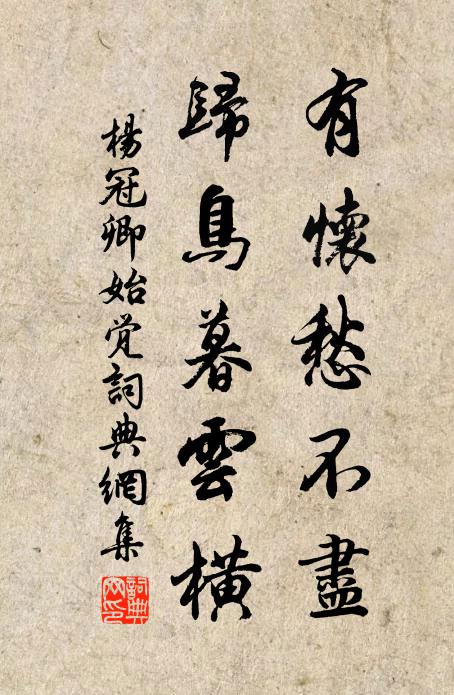 有懷愁不盡
歸鳥暮雲橫
楊冠卿始覺詞典網集
詞典網印